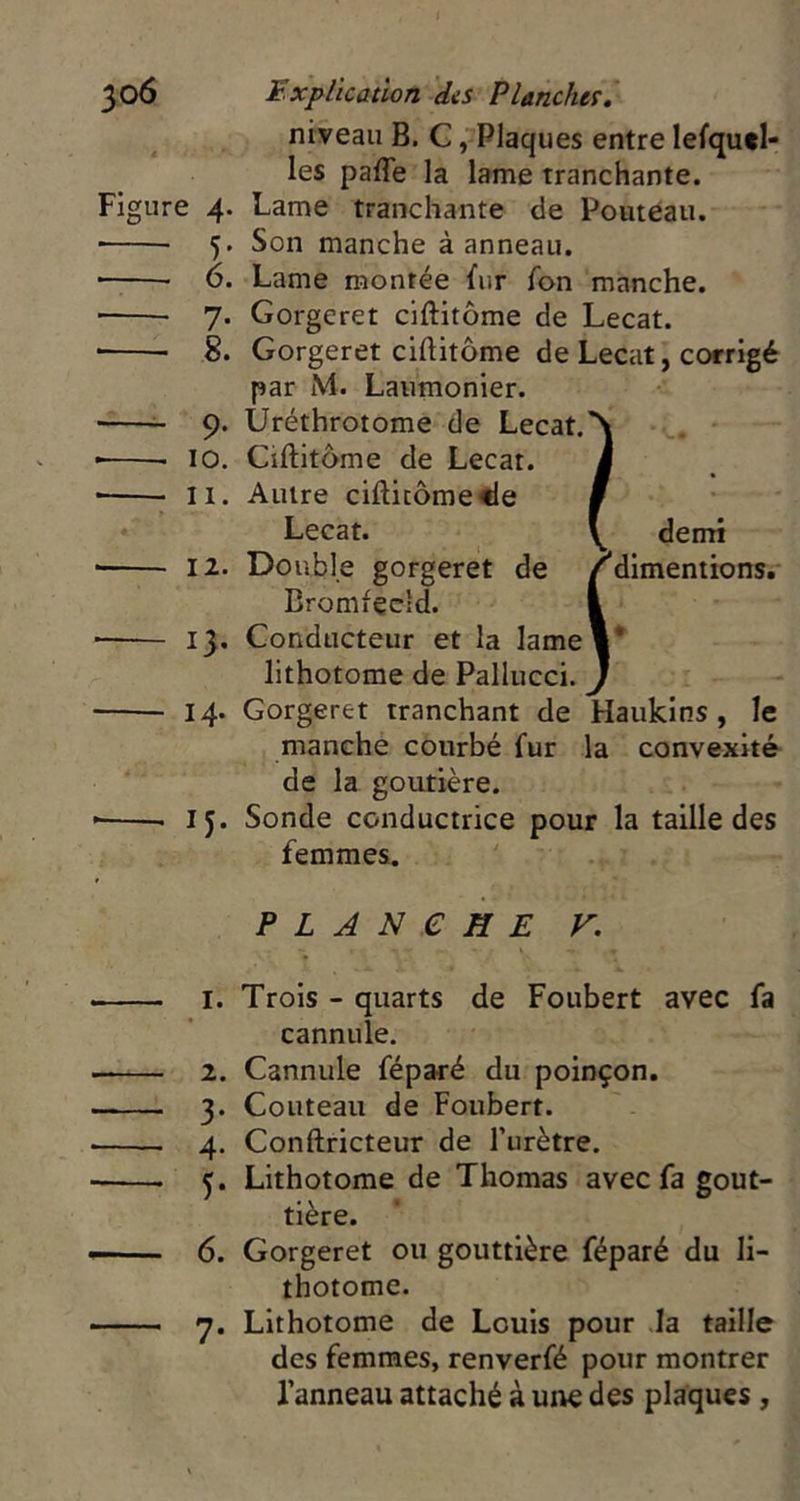 306 Explication des Planches.
niveau B. C, Plaques entre leſquel-
les paſſe la lame tranchante.
Figure 4. Lame tranchante de Pouteau.
—— 5. Son manche à anneau.
—— 6. Lame montée ſur ſon manche.
—— 7. Gorgeret ciſtitôme de Lecat.
—— 8. Gorgeret ciſtitôme de Lecat, corrigé
par M. Laumonier.
—— 9. Uréthrotome de Lecat.
—— 10. Ciſtitôme de Lecat.
—— 11. Autre ciſtitôme de
Lecat. demi
—— 12. Double gorgeret de dimentions.
Bromfeeld.
—— 13. Conducteur et la lame
lithotome de Pallucci.
—— 14. Gorgeret tranchant de Haukins, le
manche courbé ſur la convexité
de la goutière.
—— 15. Sonde conductrice pour la taille des
femmes.
PLANCHE V.
—— 1. Trois - quarts de Foubert avec ſa
cannule.
—— 2. Cannule ſéparé du poinçon.
—— 3. Couteau de Foubert.
—— 4. Conſtricteur de l'urètre.
—— 5. Lithotome de Thomas avec ſa gout-
tière.
—— 6. Gorgeret ou gouttière ſéparé du li-
thotome.
—— 7. Lithotome de Louis pour la taille
des femmes, renverſé pour montrer
l'anneau attaché à une des plaques,